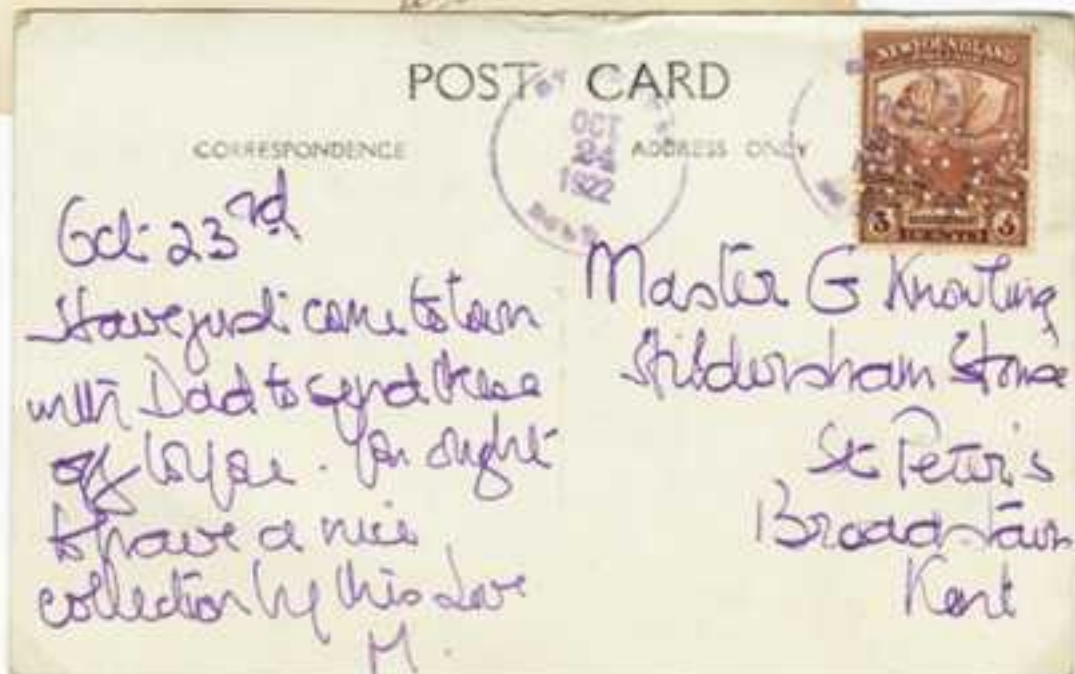 POST CARD
CORRESPONDENCE
ADDRESS ONLY
OCT
24
1922
NEWFOUNDLAND
3 3
Oct 23rd
Have just come to town
with Dad to send these
off to you. You ought
to have a nice
collection by this Love
M.
Master G Knowling
Hildersham House
St Peter's
Broadstairs
Kent